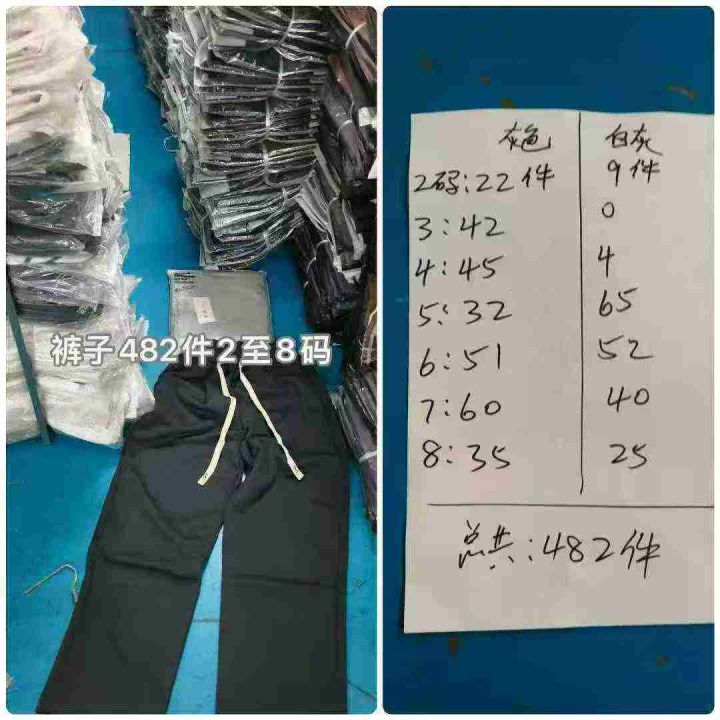 裤子482件2至8码
灰色 白灰
2码:22件 9件
3:42 0
4:45 4
5:32 65
6:51 52
7:60 40
8:35 25
总共:482件